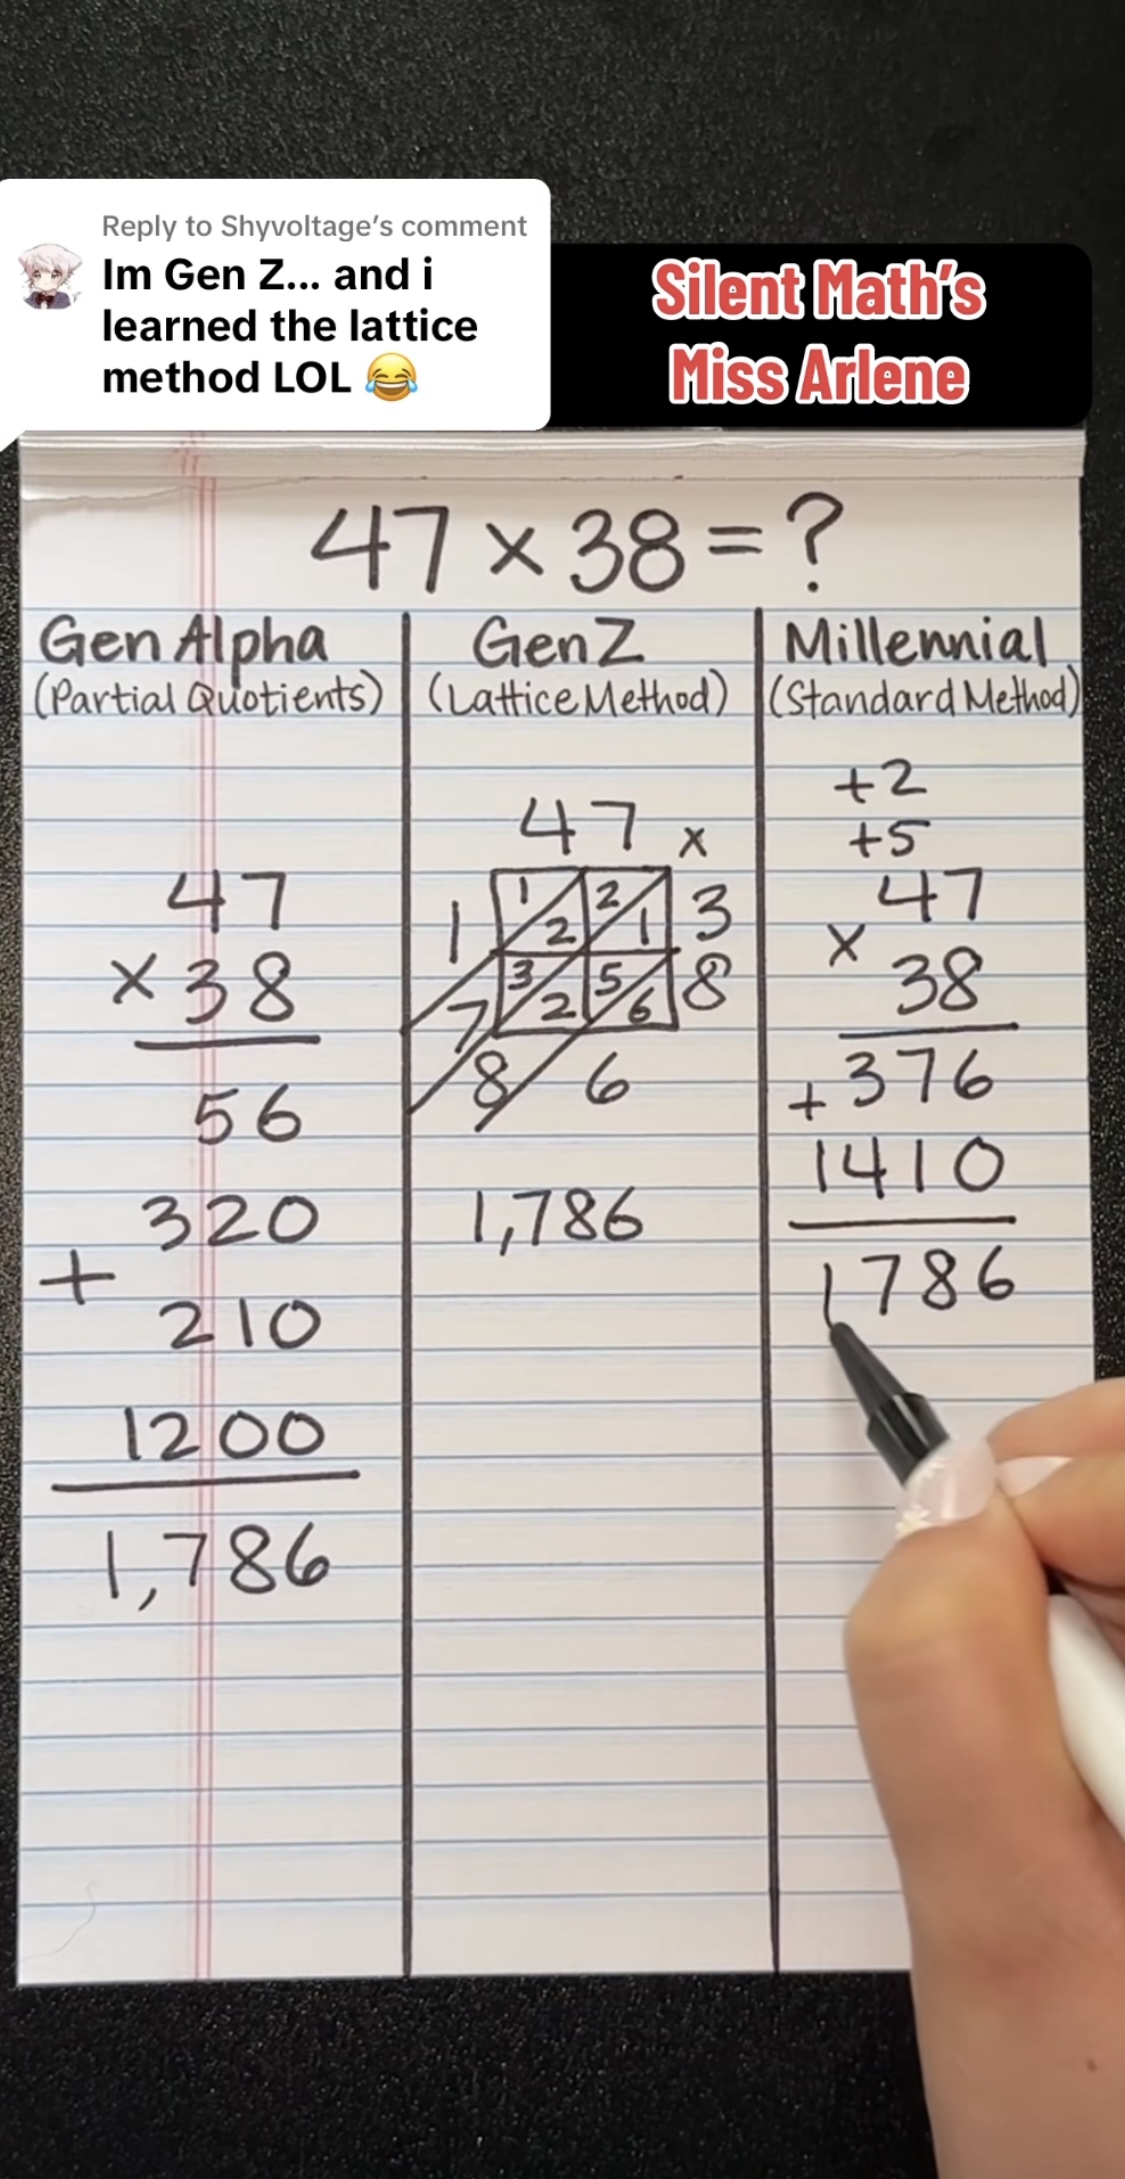 Reply to Shyvoltage's comment
Im Gen Z... and i
learned the lattice
method LOL 😂
Silent Math's
Miss Arlene
47 × 38 = ?
Gen Alpha
(Partial Quotients)
47
× 38
56
320
+
210
1200
1,786
Gen Z
(Lattice Method)
47 x
1 1 2 3
2 1
3 5 8
7 2 6
8 6
1,786
Millennial
(Standard Method)
+2
+5
47
x
38
376
+
1410
1786